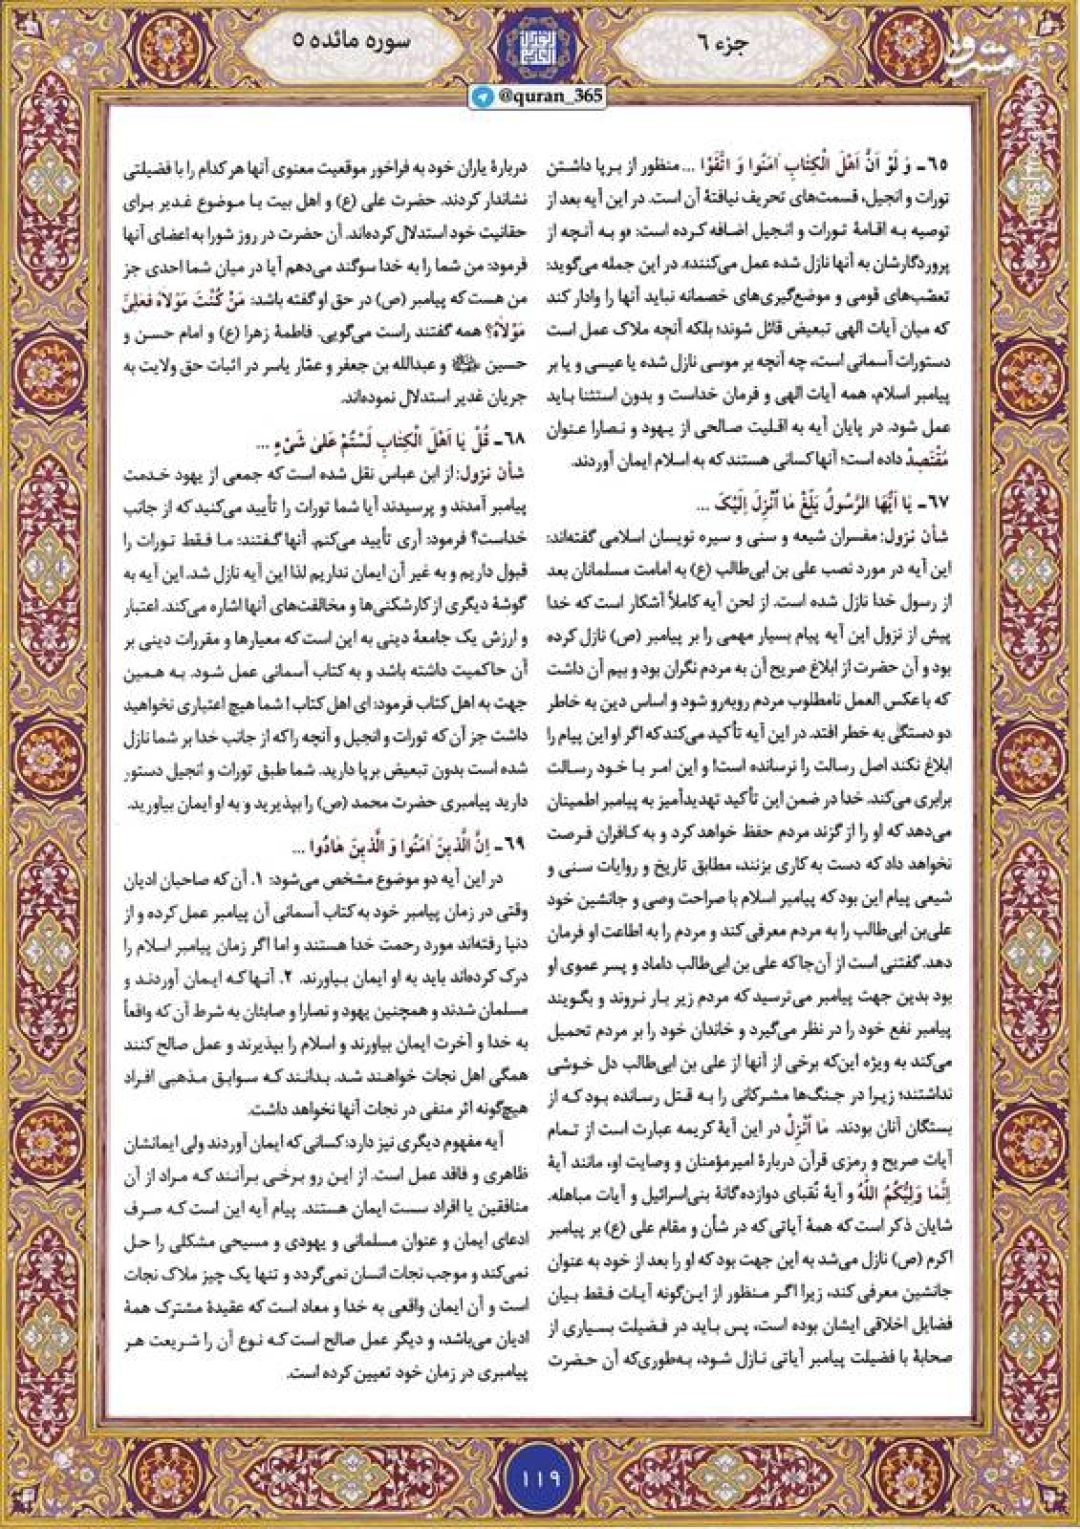 جزء ۶
سوره مائده ۵
@quran_365
۶۵ـ وَ لَوْ اَنَّ اَهْلَ الْكِتابِ اٰمَنُوا وَ اتَّقَوْا ... منظور از برپا داشتن
تورات و انجیل، قسمت‌های تحریف نیافتهٔ آن است. در این آیه بعد از
توصیه به اقامهٔ تورات و انجیل اضافه کرده است: «و به آنچه از
پروردگارشان به آنها نازل شده عمل می‌کنند». در این جمله می‌گوید:
تعصّب‌های قومی و موضع‌گیری‌های خصمانه نباید آنها را وادار کند
که میان آیات الهی تبعیض قائل شوند؛ بلکه آنچه ملاک عمل است
دستورات آسمانی است، چه آنچه بر موسی نازل شده یا عیسی و یا بر
پیامبر اسلام، همه آیات الهی و فرمان خداست و بدون استثنا باید
عمل شود. در پایان آیه به اقلیت صالحی از یهود و نصارا عنوان
مُقْتَصِدْ داده است؛ آنها کسانی هستند که به اسلام ایمان آوردند.
۶۷ـ يا اَيُّهَا الرَّسُولُ بَلِّغْ ما اُنْزِلَ اِلَيْكَ ...
شأن نزول: مفسران شیعه و سنی و سیره نویسان اسلامی گفته‌اند:
این آیه در مورد نصب علی بن ابی‌طالب (ع) به امامت مسلمانان بعد
از رسول خدا نازل شده است. از لحن آیه کاملاً آشکار است که خدا
پیش از نزول این آیه پیام بسیار مهمی را بر پیامبر (ص) نازل کرده
بود و آن حضرت از ابلاغ صریح آن به مردم نگران بود و بیم آن داشت
که با عکس العمل نامطلوب مردم روبه‌رو شود و اساس دین به خاطر
دو دستگی به خطر افتد. در این آیه تأکید می‌کند که اگر او این پیام را
ابلاغ نکند اصل رسالت را نرسانده است! و این امر با خود رسالت
برابری می‌کند. خدا در ضمن این تأکید تهدیدآمیز به پیامبر اطمینان
می‌دهد که او را از گزند مردم حفظ خواهد کرد و به کافران فرصت
نخواهد داد که دست به کاری بزنند، مطابق تاریخ و روایات سنی و
شیعی پیام این بود که پیامبر اسلام با صراحت وصی و جانشین خود
علی‌بن ابی‌طالب را به مردم معرفی کند و مردم را به اطاعت او فرمان
دهد. گفتنی است از آن‌جا که علی بن ابی‌طالب داماد و پسر عموی او
بود بدین جهت پیامبر می‌ترسید که مردم زیر بار نروند و بگویند
پیامبر نفع خود را در نظر می‌گیرد و خاندان خود را بر مردم تحمیل
می‌کند به ویژه این‌که برخی از آنها از علی بن ابی‌طالب دل خوشی
نداشتند؛ زیرا در جنگ‌ها مشرکانی را به قتل رسانده بود که از
بستگان آنان بودند. ما اُنْزِلْ در این آیهٔ کریمه عبارت است از تمام
آیات صریح و رمزی قرآن دربارهٔ امیرمؤمنان و وصایت او، مانند آیهٔ
اِنَّما وَلِيُّكُمُ اللّٰهُ و آیهٔ نُقبای دوازده‌گانهٔ بنی‌اسرائیل و آیات مباهله.
شایان ذکر است که همهٔ آیاتی که در شأن و مقام علی (ع) بر پیامبر
اکرم (ص) نازل می‌شد به این جهت بود که او را بعد از خود به عنوان
جانشین معرفی کند، زیرا اگر منظور از این‌گونه آیات فقط بیان
فضایل اخلاقی ایشان بوده است، پس باید در فضیلت بسیاری از
صحابهٔ با فضیلت پیامبر آیاتی نازل شود، به‌طوری‌که آن حضرت
دربارهٔ یاران خود به فراخور موقعیت معنوی آنها هر کدام را با فضیلتی
نشاندار کردند. حضرت علی (ع) و اهل بیت با موضوع غدیر برای
حقانیت خود استدلال کرده‌اند. آن حضرت در روز شورا به اعضای آنها
فرمود: من شما را به خدا سوگند می‌دهم آیا در میان شما احدی جز
من هست که پیامبر (ص) در حق او گفته باشد: مَنْ كُنْتَ مَوْلاهُ فَعَلِىٌّ
مَوْلاهُ؟ همه گفتند راست می‌گویی. فاطمهٔ زهرا (ع) و امام حسن و
حسین و عبدالله بن جعفر و عمّار یاسر در اثبات حق ولایت به
جریان غدیر استدلال نموده‌اند.
۶۸ـ قُلْ يا اَهْلَ الْكِتابِ لَسْتُمْ عَلىٰ شَىْءٍ ...
شأن نزول: از ابن عباس نقل شده است که جمعی از یهود خدمت
پیامبر آمدند و پرسیدند آیا شما تورات را تأیید می‌کنید که از جانب
خداست؟ فرمود: آری تأیید می‌کنم. آنها گفتند: ما فقط تورات را
قبول داریم و به غیر آن ایمان نداریم لذا این آیه نازل شد. این آیه به
گوشهٔ دیگری از کارشکنی‌ها و مخالفت‌های آنها اشاره می‌کند. اعتبار
و ارزش یک جامعهٔ دینی به این است که معیارها و مقررات دینی بر
آن حاکمیت داشته باشد و به کتاب آسمانی عمل شود. به همین
جهت به اهل کتاب فرمود: ای اهل کتاب! شما هیچ اعتباری نخواهید
داشت جز آن که تورات و انجیل و آنچه را که از جانب خدا بر شما نازل
شده است بدون تبعیض برپا دارید. شما طبق تورات و انجیل دستور
دارید پیامبری حضرت محمد (ص) را بپذیرید و به او ایمان بیاورید.
۶۹ـ اِنَّ الَّذينَ اٰمَنُوا وَ الَّذينَ هادُوا ...
در این آیه دو موضوع مشخص می‌شود: ۱. آن که صاحبان ادیان
وقتی در زمان پیامبر خود به کتاب آسمانی آن پیامبر عمل کرده و از
دنیا رفته‌اند مورد رحمت خدا هستند و اما اگر زمان پیامبر اسلام را
درک کرده‌اند باید به او ایمان بیاورند. ۲. آنها که ایمان آوردند و
مسلمان شدند و همچنین یهود و نصارا و صابئان به شرط آن که واقعاً
به خدا و آخرت ایمان بیاورند و اسلام را بپذیرند و عمل صالح کنند
همگی اهل نجات خواهند شد. بدانند که سوابق مذهبی افراد
هیچ‌گونه اثر منفی در نجات آنها نخواهد داشت.
آیه مفهوم دیگری نیز دارد: کسانی که ایمان آوردند ولی ایمانشان
ظاهری و فاقد عمل است. از این رو برخی برآنند که مراد از آن
منافقین یا افراد سست ایمان هستند. پیام آیه این است که صرف
ادعای ایمان و عنوان مسلمانی و یهودی و مسیحی مشکلی را حل
نمی‌کند و موجب نجات انسان نمی‌گردد و تنها یک چیز ملاک نجات
است و آن ایمان واقعی به خدا و معاد است که عقیدهٔ مشترک همهٔ
ادیان می‌باشد، و دیگر عمل صالح است که نوع آن را شریعت هر
پیامبری در زمان خود تعیین کرده است.
۱۱۹